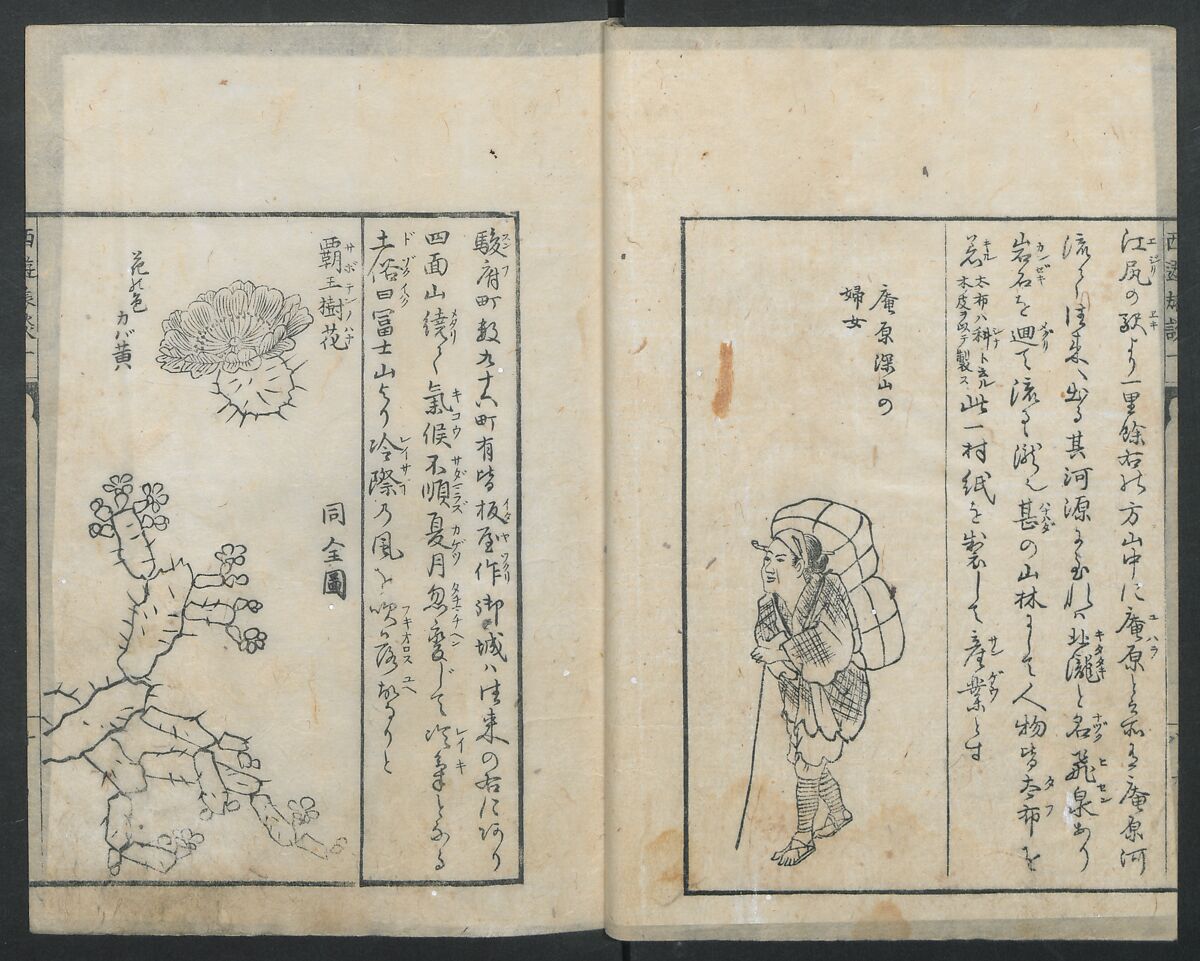 西遊旅譚一
江尻の駅より一里餘右の方山中に庵原と云所有庵原河
流て往来へ出る其河源に至れは北瀧と名飛泉あり
岩石を廻て流る瀧也甚の山林にして人物皆太布を
着太布ハ科ト云ル木皮ヲ以テ製ス此一村紙を製して産業とす
庵原深山の
婦女
駿府町数九十六町有皆板屋作御城ハ往来の右にあり
四面山繞て氣候不順夏月忽変じて冷氣となる
土俗曰冨士山より冷際の風を吹落故なりと
覇王樹花
サボテンノハナ
花の色カバ黄
同全圖